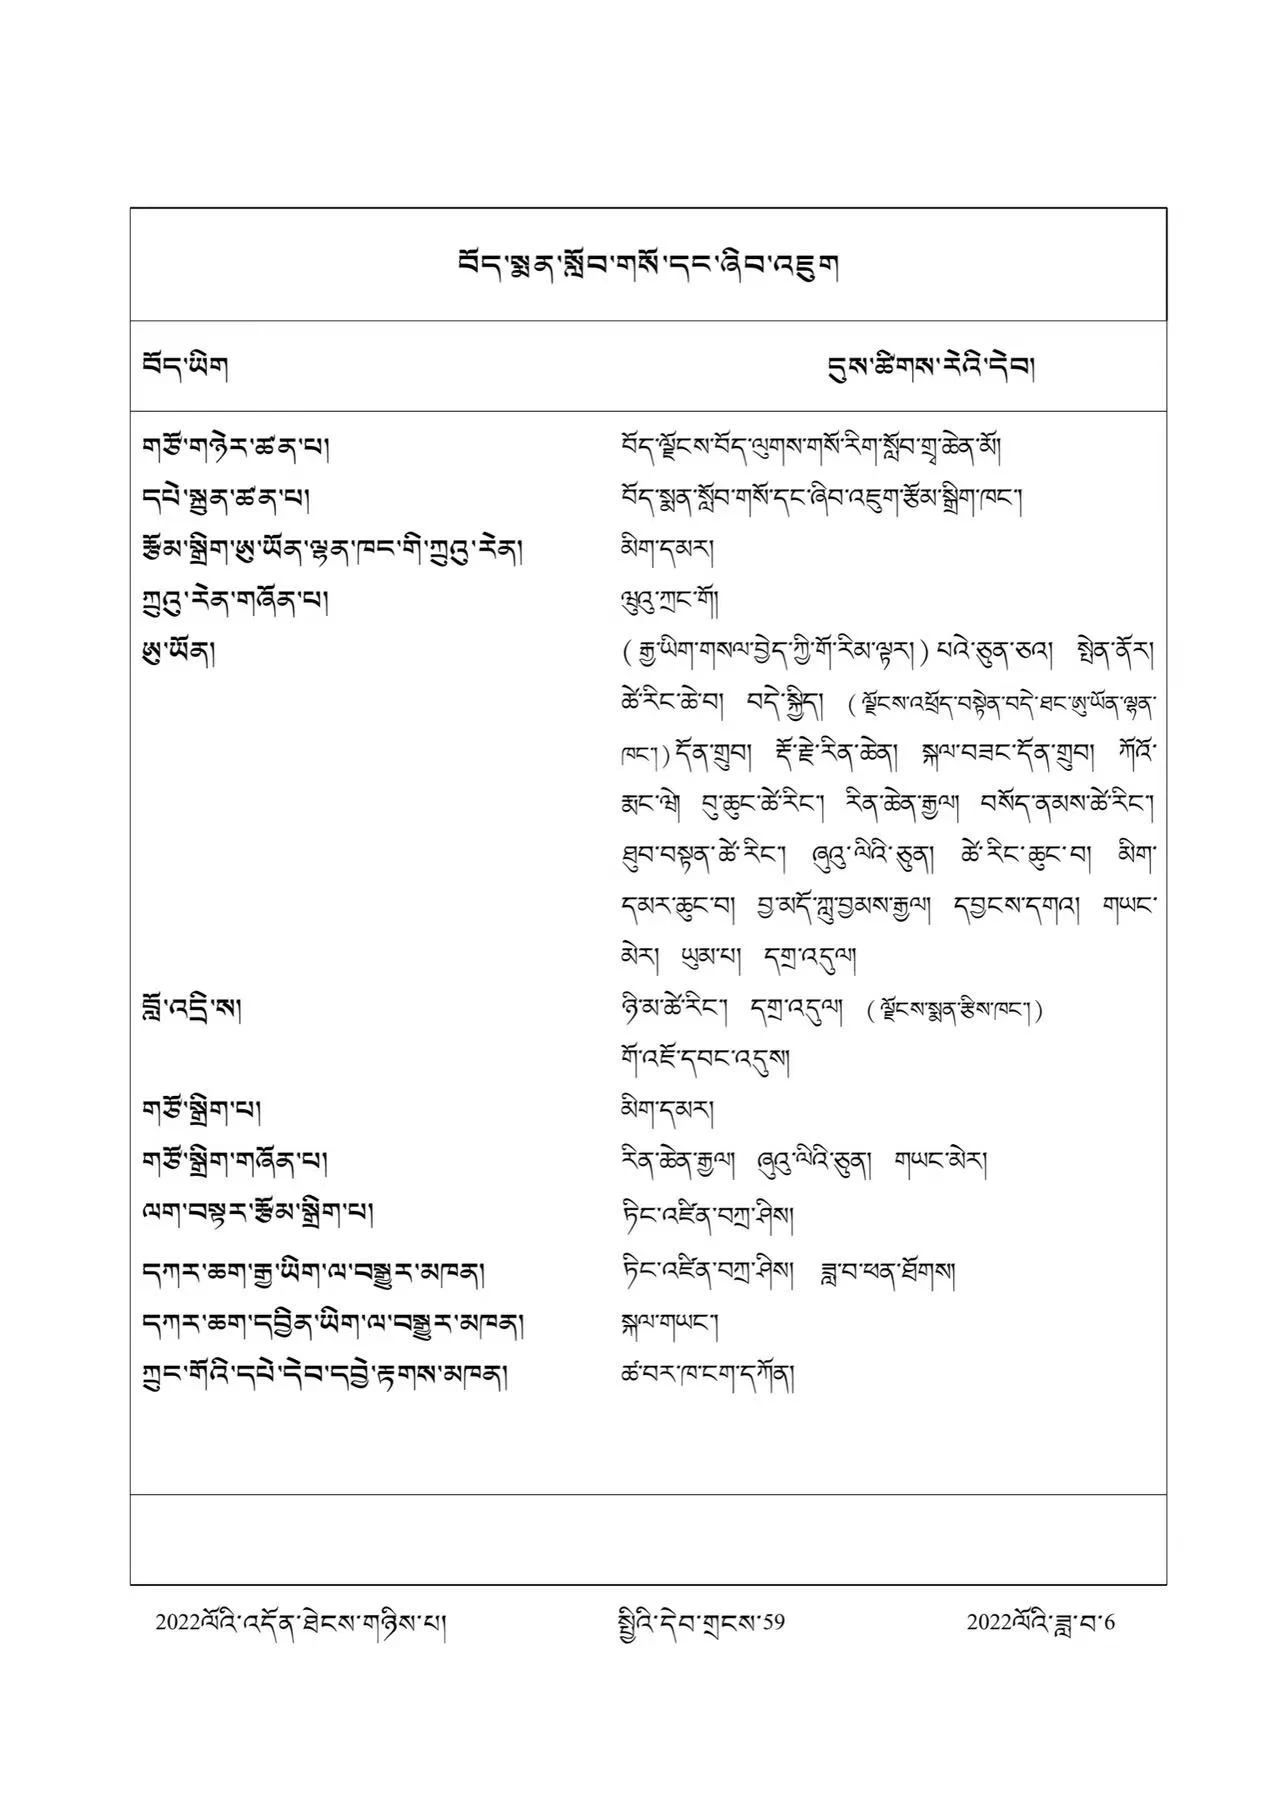 བོད་སྨན་སློབ་གསོ་དང་ཞིབ་འཇུག
བོད་ཡིག དུས་ཚིགས་རེའི་དེབ།
གཙོ་གཉེར་ཚན་པ། བོད་ལྗོངས་བོད་ལུགས་གསོ་རིག་སློབ་གྲྭ་ཆེན་མོ།
དཔེ་སྐྲུན་ཚན་པ། བོད་སྨན་སློབ་གསོ་དང་ཞིབ་འཇུག་རྩོམ་སྒྲིག་ཁང་།
རྩོམ་སྒྲིག་ཨུ་ཡོན་ལྷན་ཁང་གི་ཀྲུའུ་རེན། མིག་དམར།
ཀྲུའུ་རེན་གཞོན་པ། ཝུའུ་ཀྲང་གོ།
ཨུ་ཡོན། (རྒྱ་ཡིག་གསལ་བྱེད་ཀྱི་གོ་རིམ་ལྟར།) པའེ་ཅུན་ཅའ། སྤེན་ནོར།
ཚེ་རིང་ཆེ་བ། བདེ་སྐྱིད། (ལྗོངས་འཕྲོད་བསྟེན་བདེ་ཐང་ཨུ་ཡོན་ལྷན་
ཁང་།) དོན་གྲུབ། རྡོ་རྗེ་རིན་ཆེན། སྐལ་བཟང་དོན་གྲུབ། ཀོའོ་
རྨང་ཝེ། བུ་ཆུང་ཚེ་རིང་། རིན་ཆེན་རྒྱལ། བསོད་ནམས་ཚེ་རིང་།
ཐུབ་བསྟན་ཚེ་རིང་། ཞུའུ་ལིའི་ཅུན། ཚེ་རིང་ཆུང་བ། མིག་
དམར་ཆུང་བ། བྱ་མདོ་ཀླུ་བྱམས་རྒྱལ། དབྱངས་དགའ། གཡང་
མེར། ཡུམ་པ། དགྲ་འདུལ།
བློ་འདྲི་ས། ཉི་མ་ཚེ་རིང་། དགྲ་འདུལ། (ལྗོངས་སྨན་རྩིས་ཁང་།)
གོ་འཇོ་དབང་འདུས།
གཙོ་སྒྲིག་པ། མིག་དམར།
གཙོ་སྒྲིག་གཞོན་པ། རིན་ཆེན་རྒྱལ། ཞུའུ་ལིའི་ཅུན། གཡང་མེར།
ལག་བསྟར་རྩོམ་སྒྲིག་པ། ཏིང་འཛིན་བཀྲ་ཤིས།
དཀར་ཆག་རྒྱ་ཡིག་ལ་བསྒྱུར་མཁན། ཏིང་འཛིན་བཀྲ་ཤིས། ཟླ་བ་ཕན་ཐོགས།
དཀར་ཆག་དབྱིན་ཡིག་ལ་བསྒྱུར་མཁན། སྐལ་གཡང་།
ཀྲུང་གོའི་དཔེ་དེབ་དབྱེ་རྟགས་མཁན། ཚ་བར་ཁ་ངག་དཀོན།
2022ལོའི་འདོན་ཐེངས་གཉིས་པ། སྤྱིའི་དེབ་གྲངས་59 2022ལོའི་ཟླ་བ་6